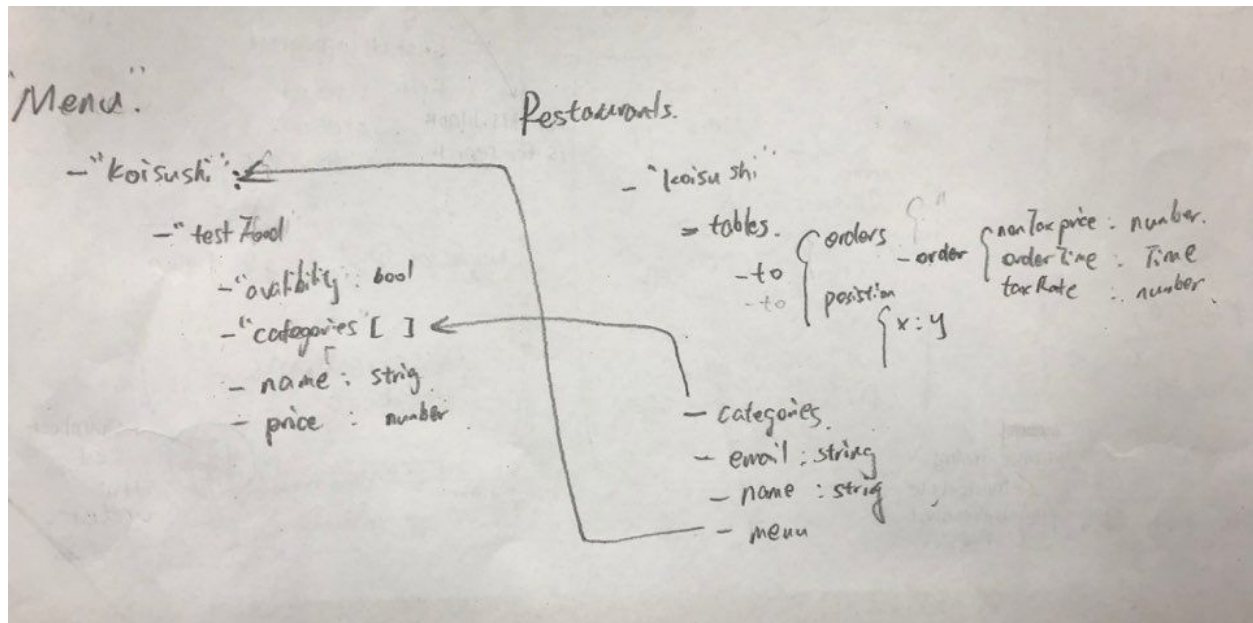 "Menu".
- "koisushi":
- "test Food
- "avalibility : bool
- "categories [ ]
- name : strig
- price : number
Restaurants.
- "koisushi"
= tables.
- to { orders - order { nonTax price : number.
orderTime : Time
taxRate : number.
- to
posistion
{ x : y
- categories.
- email : string
- name : strig
- menu